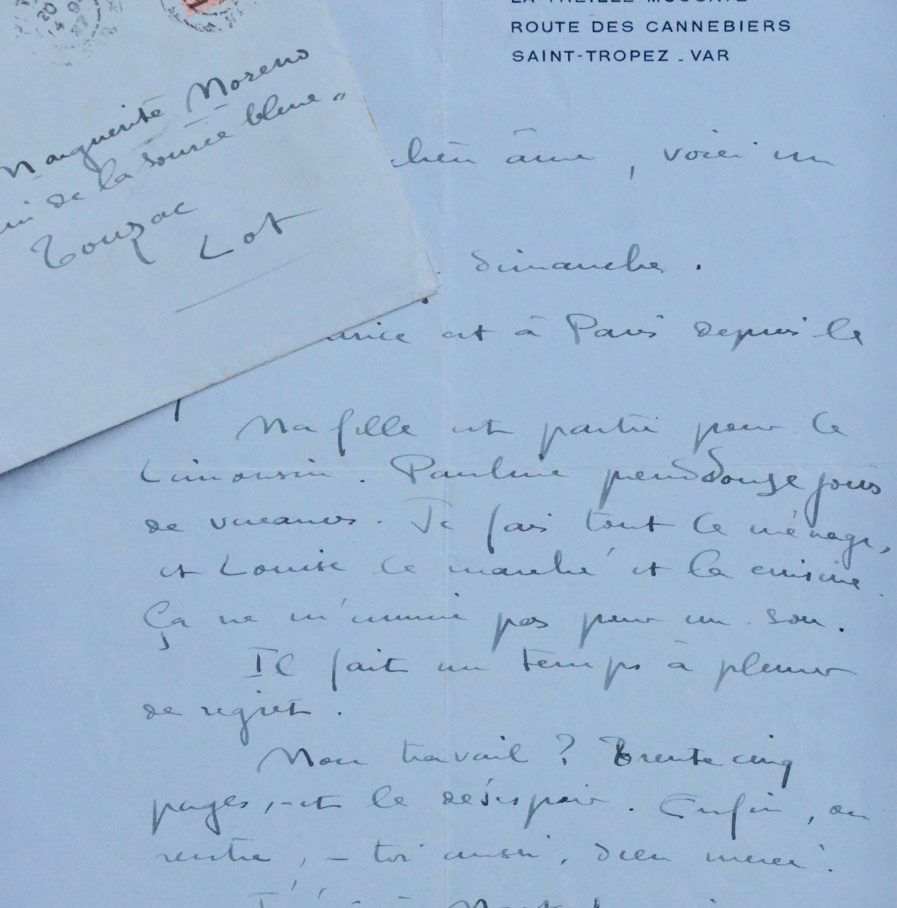 LA TREILLE MUSCATE
ROUTE DES CANNEBIERS
SAINT-TROPEZ - VAR
Marguerite Moreno
de la source bleue"
Touzac
Lot
chère âme, voici un
dimanche.
est à Paris depuis le
Ma fille est partie pour le
Limousin. Pauline prend douze jours
de vacances. Je fais tout le ménage,
et Louise le marché et la cuisine.
Ça ne m'ennuie pas pour un sou.
Il fait un temps à pleurer
de regret.
Mon travail ? Trente cinq
pages, - et le désespoir. Enfin, on
rentre, - toi aussi, dieu merci.